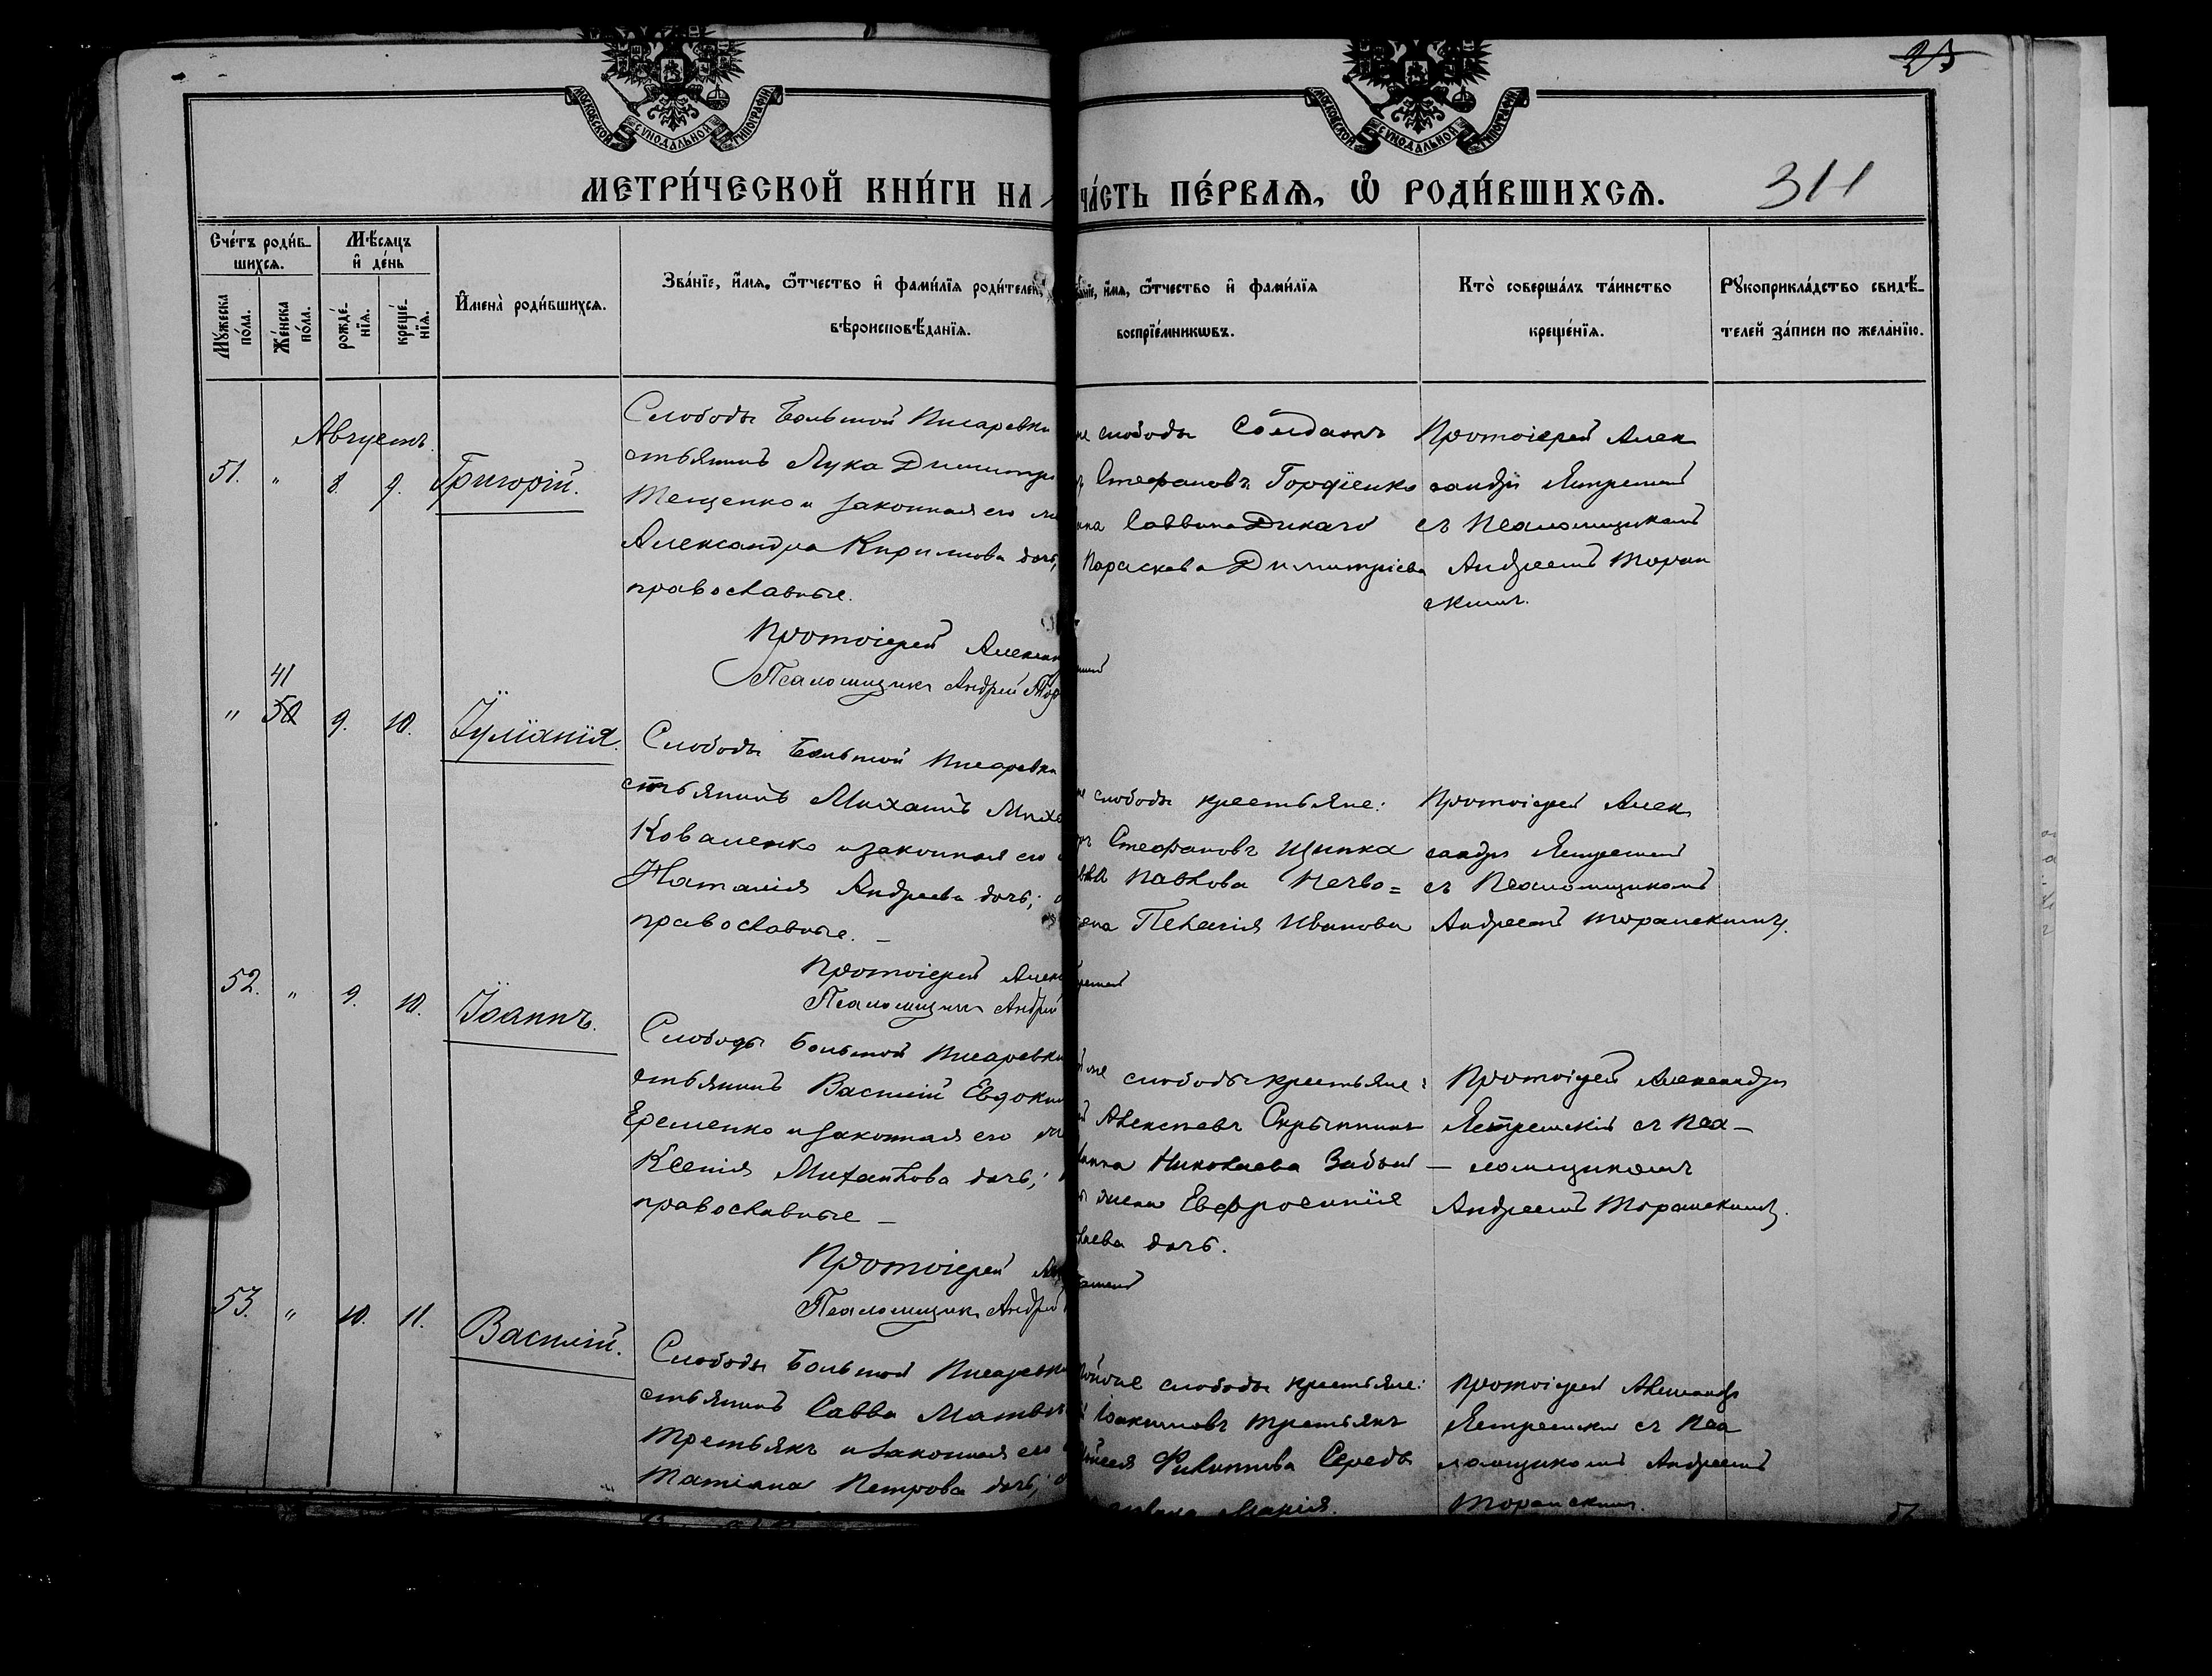 МОСКОВСКОЙ СѴНОДАЛЬНОЙ ТИПОГРАФІИ
МОСКОВСКОЙ СѴНОДАЛЬНОЙ ТИПОГРАФІИ
МЕТРИ́ЧЕСКОЙ КНИ́ГИ НА
ЧА́СТЬ ПЕ́РВАѦ, Ѡ РОДИ́ВШИХСѦ.
311
Сче́тъ роди́в-
шихсѧ.
Мѣ́сѧцъ
и де́нь
Мꙋ́жеска
по́ла.
Же́нска
по́ла.
рожде́-
нїѧ.
креще́-
нїѧ.
Имена̀ роди́вшихсѧ.
Зва́нїе, и́мѧ, ѻ́тчество и фами́лїѧ роди́телей,
вѣроисповѣ́данїѧ.
и́мѧ, ѻ́тчество и фами́лїѧ
воспрїе́мникѡвъ.
Кто̀ соверша́лъ та́инство
креще́нїѧ.
Рꙋкоприкла́дство свидѣ́-
телей за́писи по жела́нїю.
Августъ.
51. " 8. 9. Григорій.
Слободы Большой Писаревки
стьянинъ Лука Димитрі
Тещенко и законная его
Александра Кирилова дочь,
православные.
Протоіерей Алексан
Псаломщикъ Андрей Тор
слободы Солдатъ
Стефановъ Гордіенко
Саввина Дикаго
Параскева Димитріева
Протоіерей Алек
сандръ Ястремскій
съ Псаломщикомъ
Андреемъ Торан
скимъ.
" 41
50 9. 10. Іуліанія.
Слободы Большой Писаревки
стьянинъ Михаилъ Миха
Коваленко и законная его
Наталія Андреева дочь;
православные. –
Протоіерей Алек
Псаломщикъ Андрей
слободы крестьяне:
Стефановъ Щипка
Павлова
Пелагія Иванова
Протоіерей Алек
сандръ Ястремскій
съ Псаломщикомъ
Андреемъ Торанскимъ.
52. " 9. 10. Іоаннъ.
Слободы Большой Писаревки
стьянинъ Василій Евдоким
Еременко и законная его
Ксенія Михаилова дочь;
православные –
Протоіерей
Псаломщикъ Андрей
слободы крестьяне:
Алексѣевъ Скрыпникъ
Николаева
жена Евфросинія
дочь.
Протоіерей Александръ
Ястремскій съ Пса–
– ломщикомъ
Андреемъ Торанскимъ.
53. " 10. 11. Василій.
Слободы Большой Писаревки
стьянинъ Савва Матвѣ
Третьякъ и законная его
Татіана Петрова дочь;
слободы крестьяне:
Іоакимовъ Третьякъ
Филиппова Середы
Марія.
Протоіерей Александръ
Ястремскій съ Пса
ломщикомъ Андреемъ
Торанскимъ.